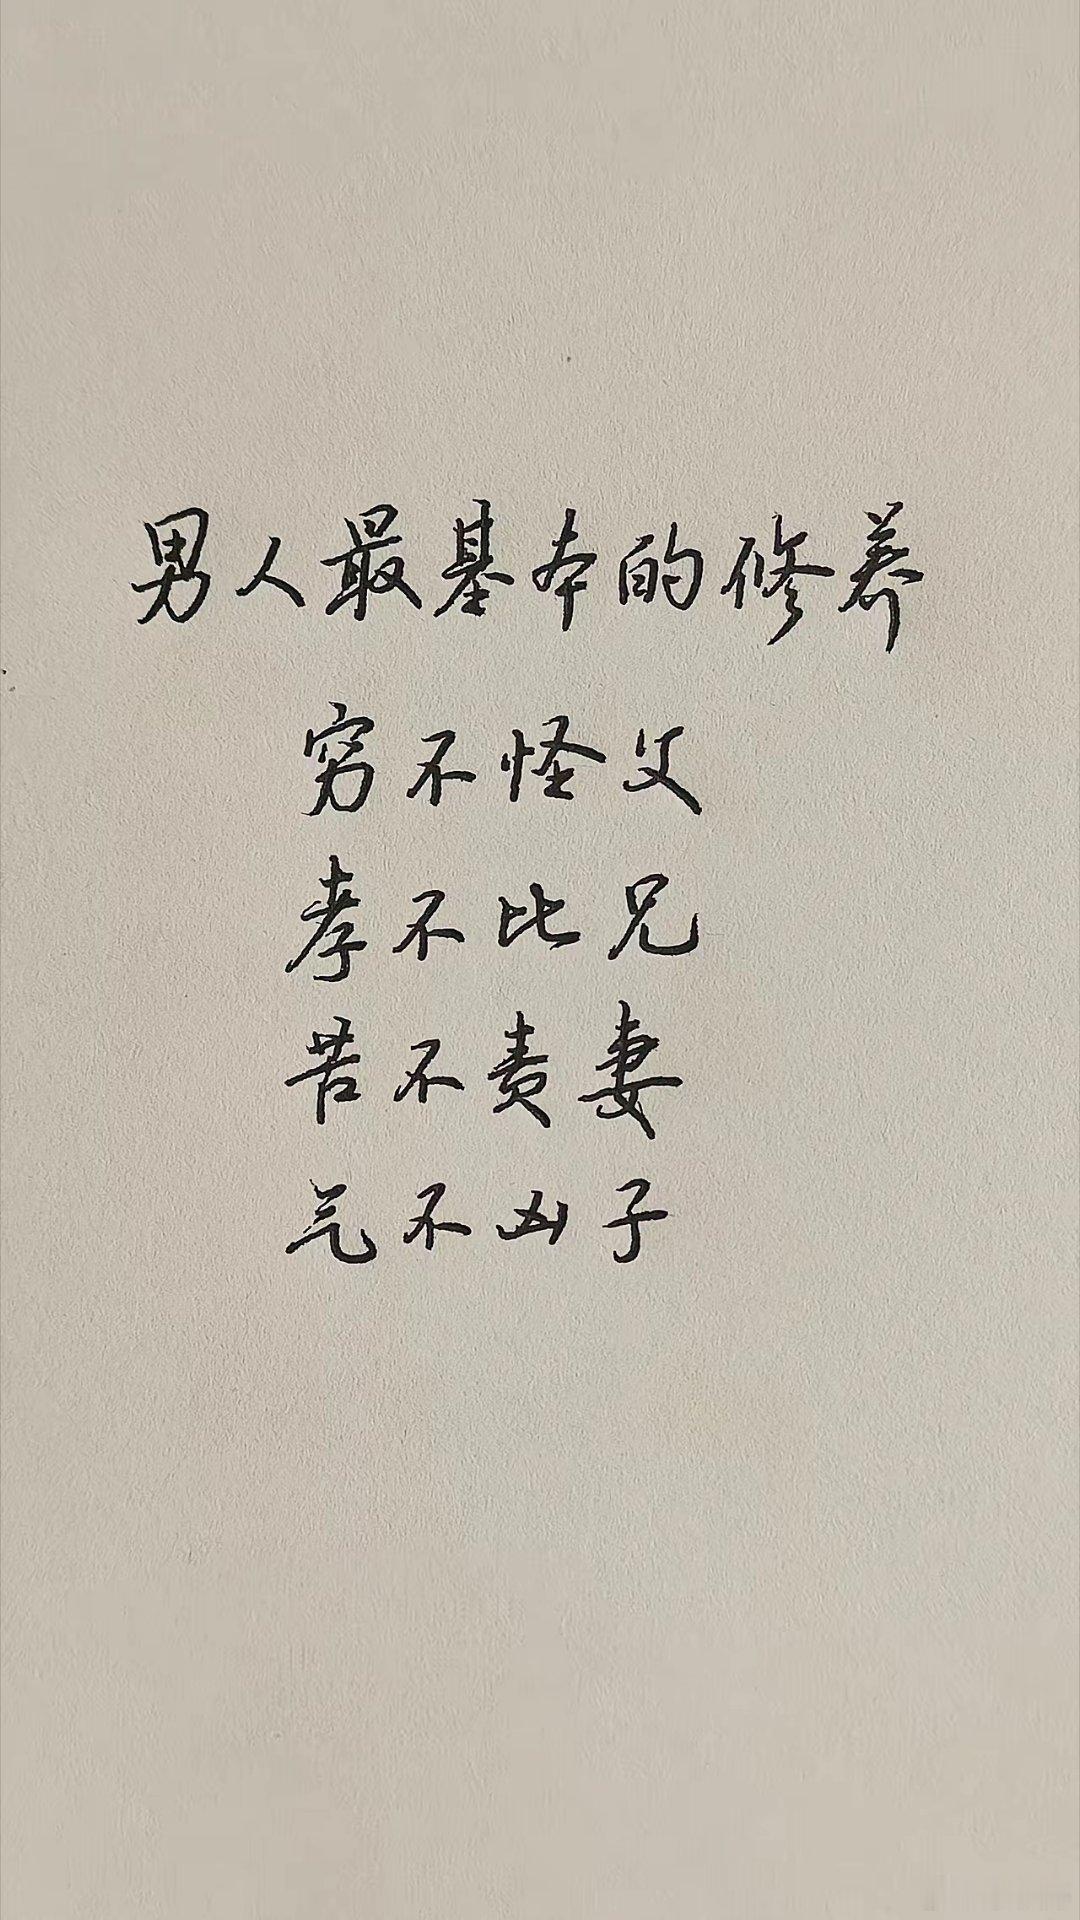 男人最基本的修养
穷不怪父
孝不比兄
苦不责妻
气不凶子